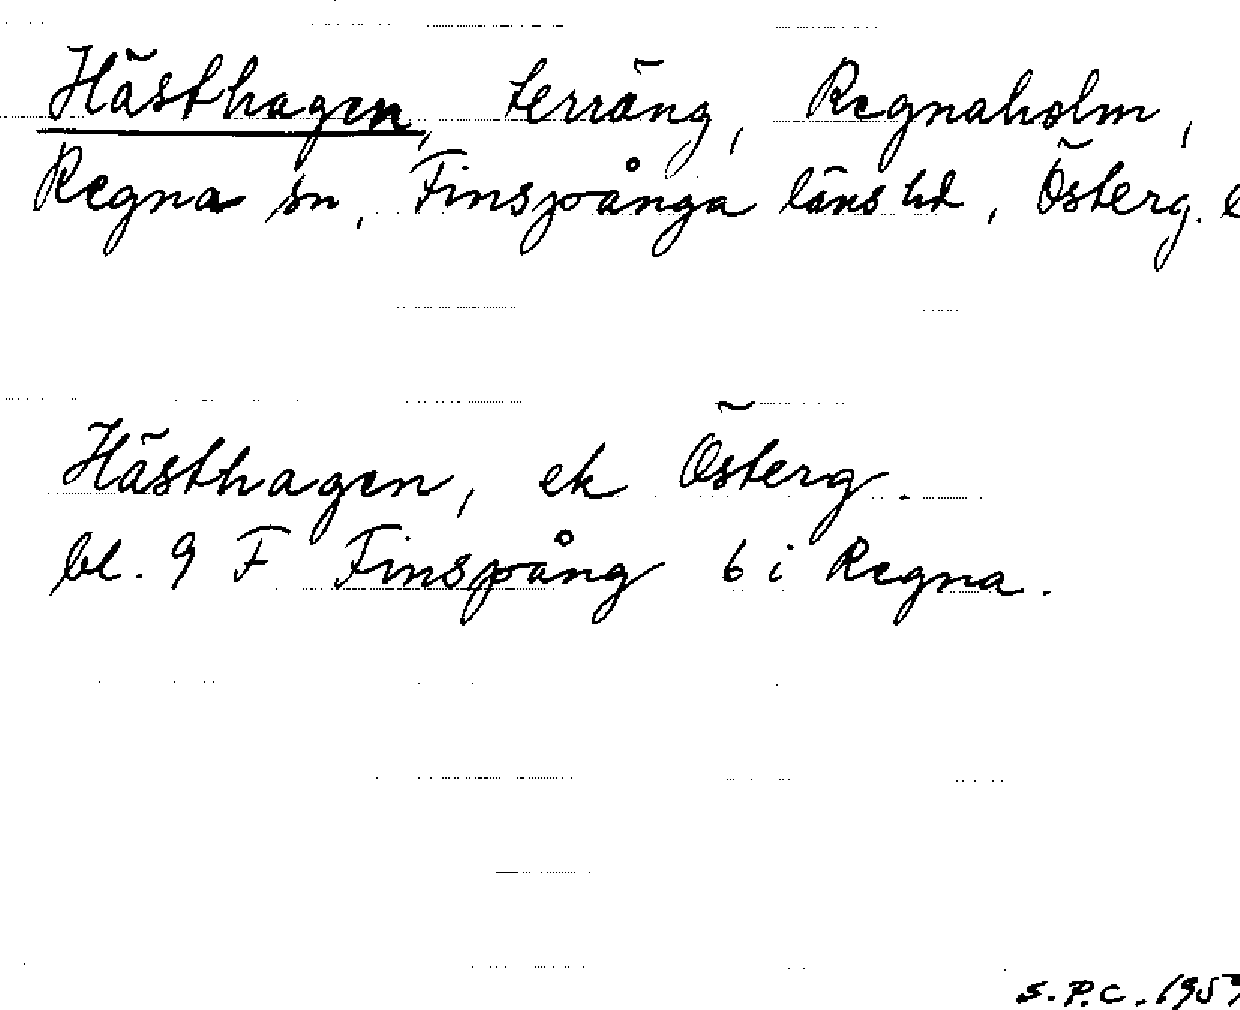 Hästhagen, terräng, Regnaholm,
Regna sn, Finspånga läns hd, Österg.
Hästhagen, ek Österg.
bl. 9 F Finspång 6 i Regna.
S.P.C. 1959